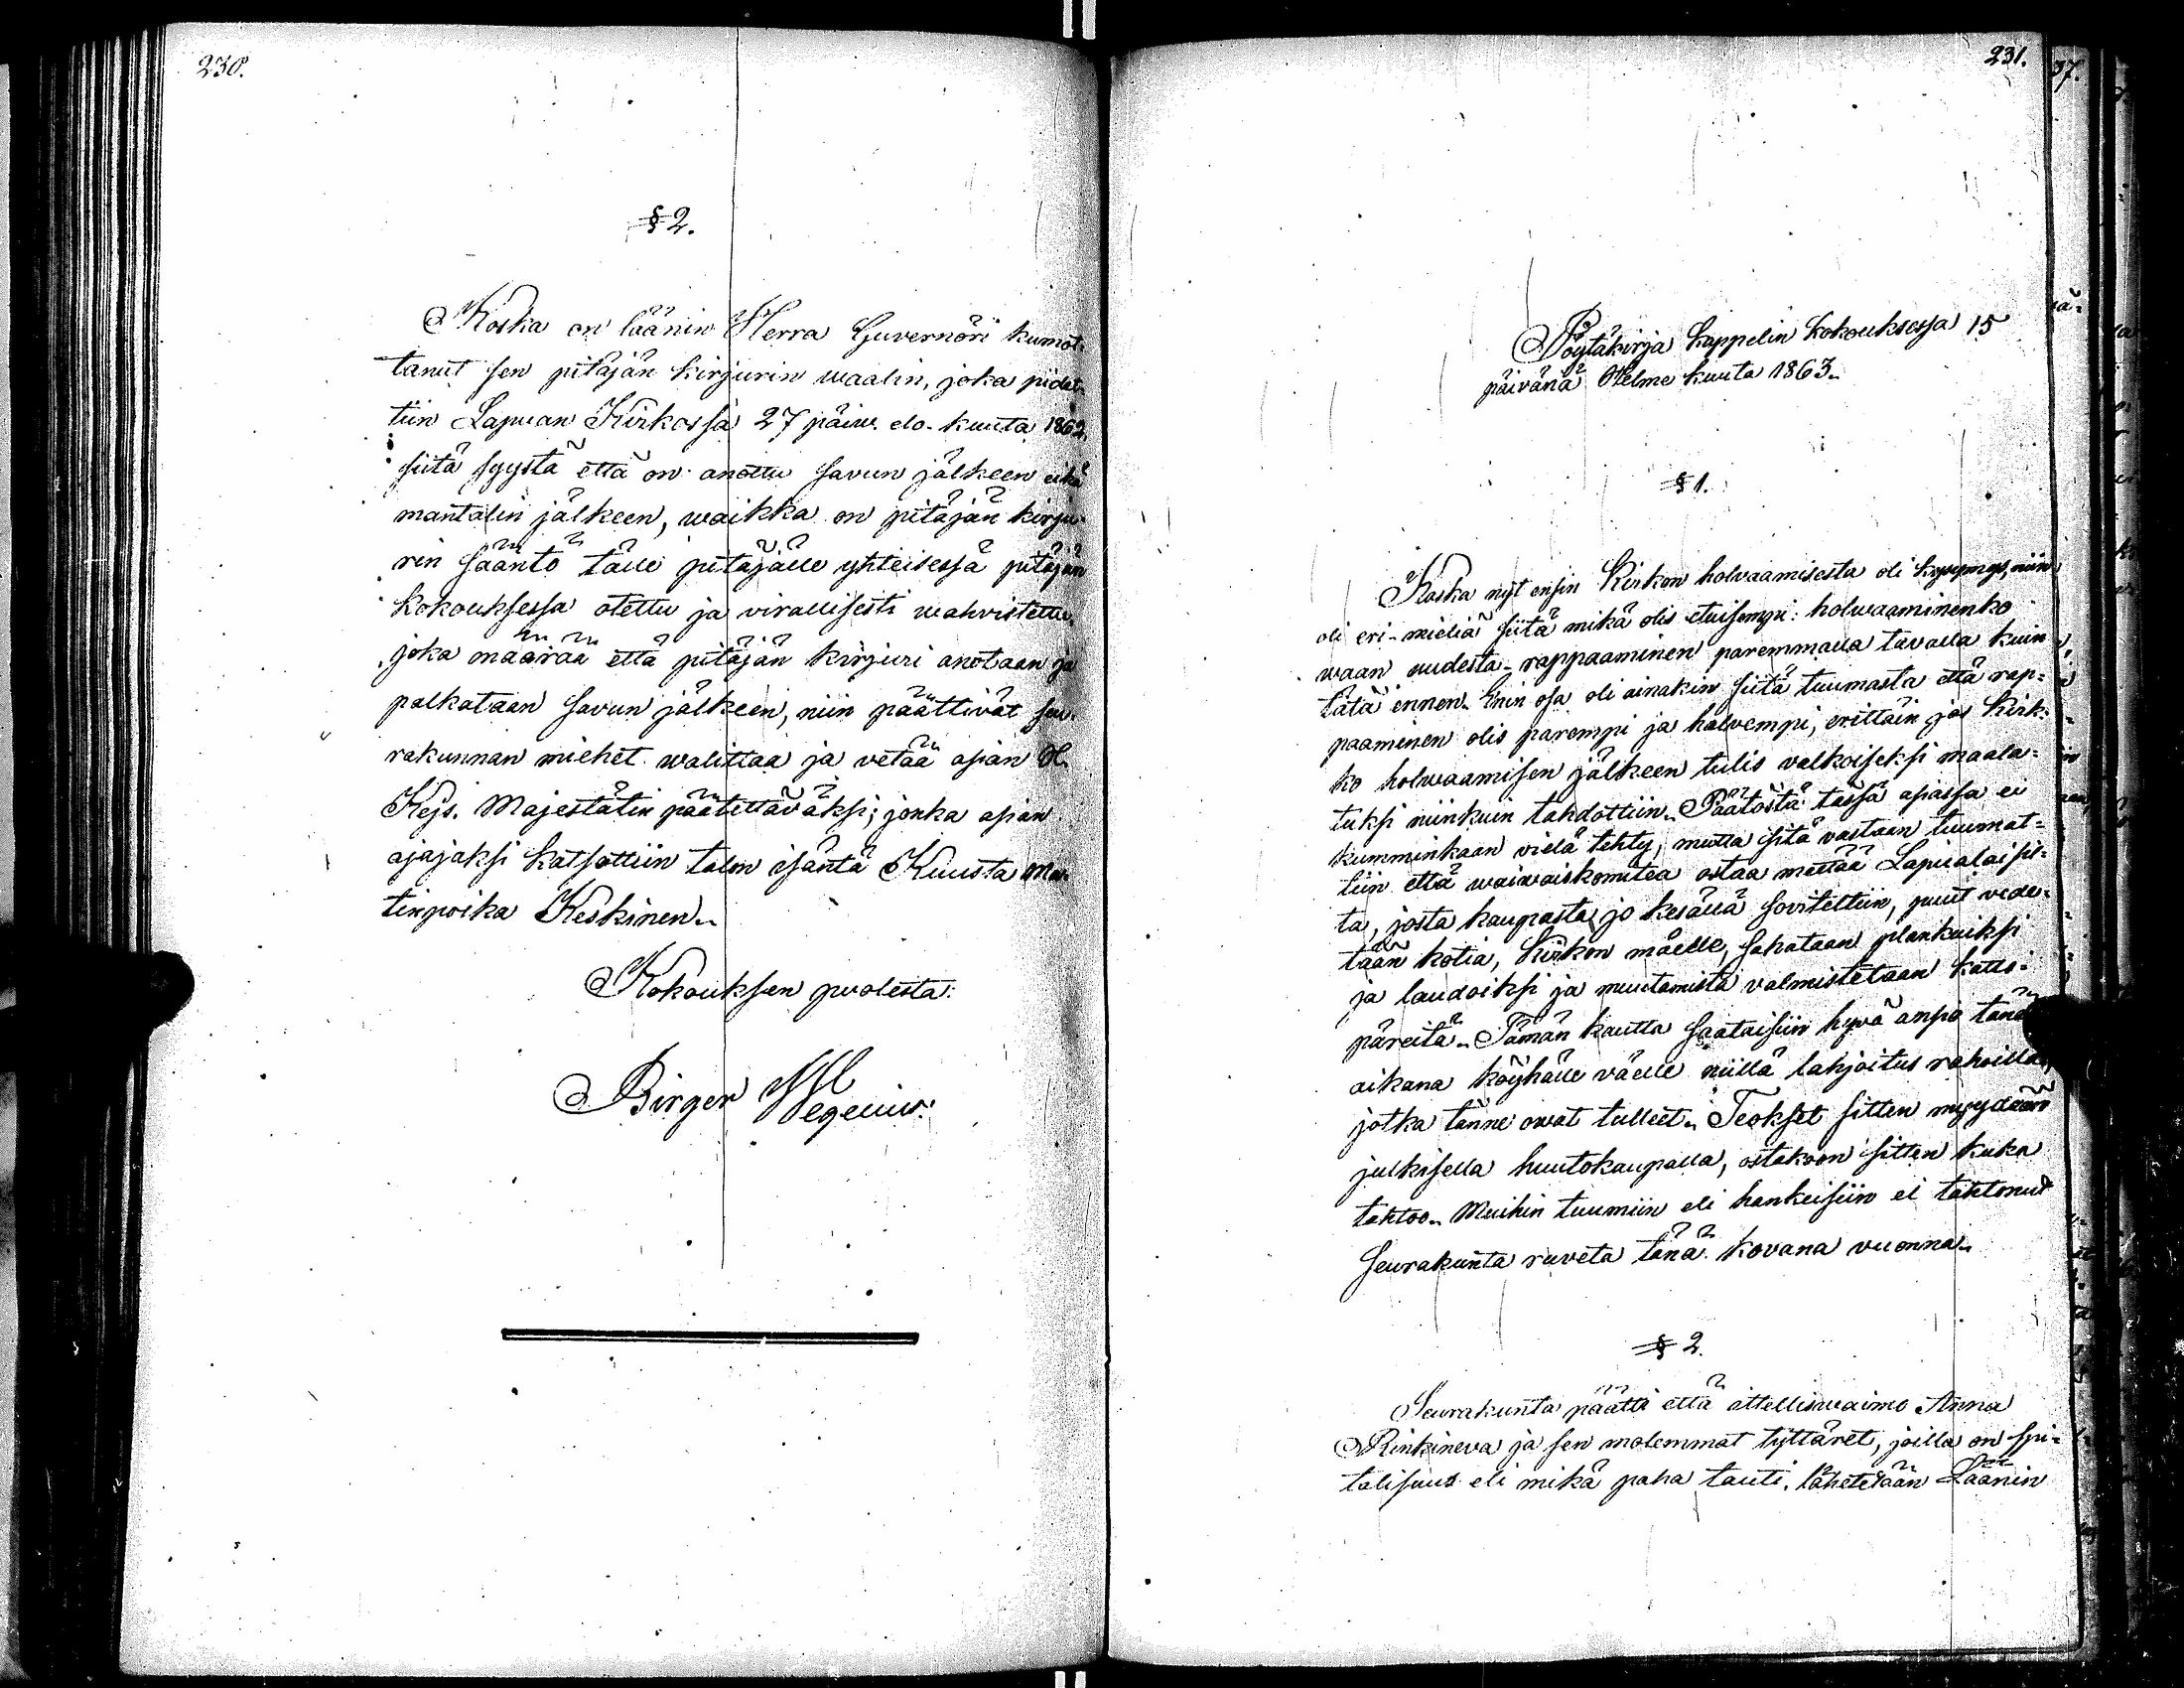 230.
§ 2.
Koska on läänin Herra Guvernöri kumot-
tanut sen pitäjän kirjurin waalin, joka pidet-
tiin Lapuan Kirkossa 27 päiw. elo-kuuta 1862,
siitä syystä että on anottu savun jälkeen eikä
mantalin jälkeen, waikka on pitäjän kirju-
rin sääntö tälle pitäjälle yhteisessä pitäjän
kokouksessa otettu ja virallisesti wahvistettu,
joka määrää että pitäjän kirjuri anotaan ja
palkataan savun jälkeen, niin päättivät seu-
rakunnan miehet walittaa ja vetää asian H.
Kejs. Majestätin päätettäväksi; jonka asian
ajajaksi katsottiin talon isäntä Kuusta Mat-
tinpoika Keskinen.
Kokouksen puolesta:
Birger Hegenius.
231.
Pöytäkirja kappelin kokouksessa 15
päivänä Helme kuuta 1863.
§ 1.
Koska nyt ensin Kirkon holwaamisesta oli kysymys, niin
oli eri-mieliä siitä mikä olis etuisempi: holwaaminenko
waan uudesta-rappaaminen paremmalla tavalla kuin
tätä ennen. Enin osa oli ainakin siitä tuumasta että rap-
paaminen olis parempi ja halvempi, erittäin jos kirk-
ko holwaamisen jälkeen tulis valkoiseksi maala-
tuksi niinkuin tahdottiin. Päätöstä tässä asiassa ei
kumminkaan vielä tehty, mutta sitä vastaan tuumat-
tiin että waiwaiskomitea ostaa mettää Lapualaisil-
ta, josta kaupasta jo kesällä soviteltiin, puut vede-
tään kotia, kirkon mäelle, sahataan plankuiksi
ja laudoiksi ja muutamista valmistetaan katto-
päreitä. Tämän kautta saataisiin hyvä ansio tänä
aikana köyhälle väelle niillä lahjoitus rahoilla,
jotka tänne owat tulleet. Teokset sitten myydään
julkisella huutokaupalla, ostakoon sitten kuka
tahtoo. Muihin tuumiin eli hankeisiin ei tahtonut
seurakunta ruveta tänä kovana vuonna.
§ 2.
Seurakunta päätti että ittelliswaimo Anna
Rinkineva ja sen molemmat tyttäret, joilla on spi-
talisuus eli mikä paha tauti, lähetetään Läänin